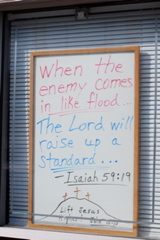 When the
enemy comes
in like flood...
The Lord will
raise up a
standard...
- Isaiah 59:19
Lift Jesus